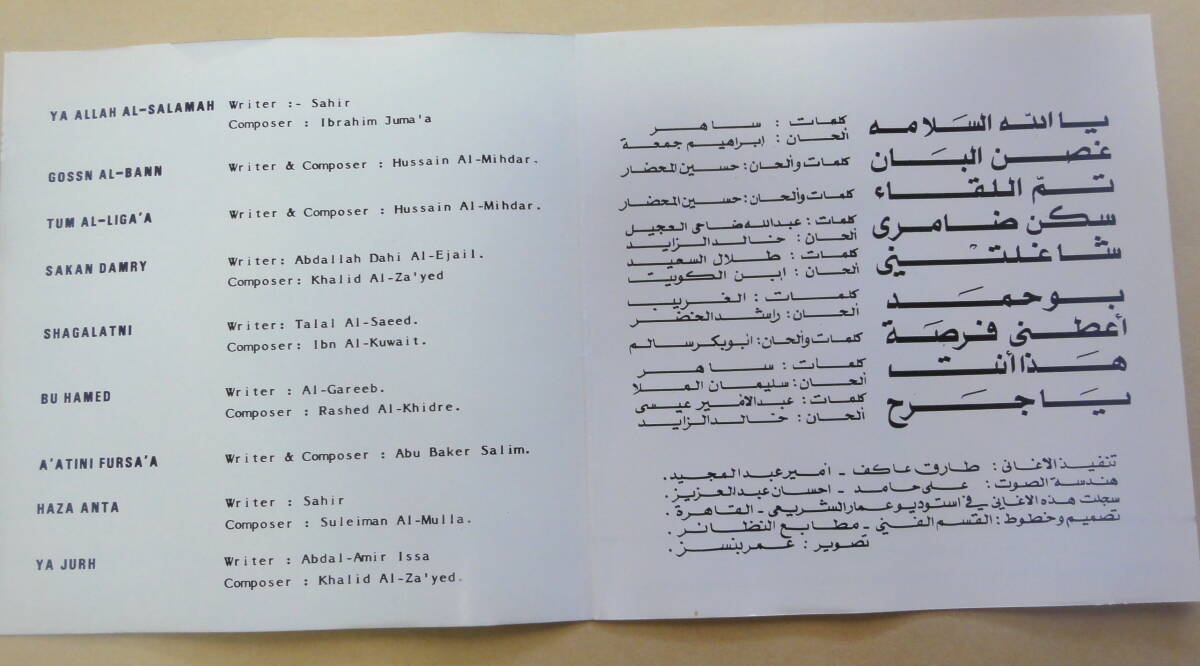 YA ALLAH AL-SALAMAH Writer :- Sahir
Composer : Ibrahim Juma'a
GOSSN AL-BANN Writer & Composer : Hussain Al-Mihdar.
TUM AL-LIGA'A Writer & Composer : Hussain Al-Mihdar.
SAKAN DAMRY Writer: Abdallah Dahi Al-Ejail.
Composer: Khalid Al-Za'yed
SHAGALATNI Writer: Talal Al-Saeed.
Composer: Ibn Al-Kuwait.
BU HAMED Writer : Al-Gareeb.
Composer : Rashed Al-Khidre.
A'ATINI FURSA'A Writer & Composer : Abu Baker Salim.
HAZA ANTA Writer : Sahir
Composer : Suleiman Al-Mulla.
YA JURH Writer : Abdal-Amir Issa
Composer : Khalid Al-Za'yed.
يا الله السلامه كلمات : ساهر
ألحان : ابراهيم جمعة
غصن البان كلمات وألحان: حسين المحضار
تمّ اللقاء كلمات وألحان: حسين المحضار
سكن ضامرى كلمات : عبدالله ضاحى العجيل
ألحان : خالد الزايد
شاغلتني كلمات : طلال السعيد
ألحان : ابن الكويت
بوحمد كلمات : الغريب
ألحان : راشد الخضر
أعطنى فرصة كلمات وألحان: ابوبكر سالم
هذا أنت كلمات : ساهر
ألحان: سليمان الملا
يا جرح كلمات : عبدالامير عيسى
ألحان : خالد الزايد
تنفيذ الاغانى : طارق عاكف - امير عبد المجيد .
هندسة الصوت : على حامد - احسان عبد العزيز .
سجلت هذه الاغاني في استوديو عمار الشريعي - القاهرة .
تصميم وخطوط : القسم الفني - مطابع النظائر .
تصوير : عمر بنسز .